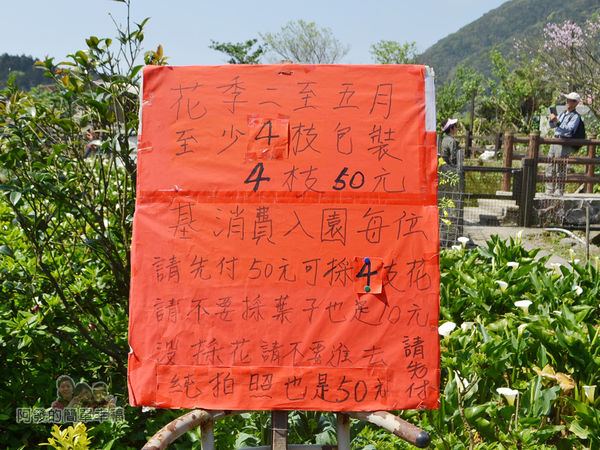 花季二至五月
至少4枝包裝
4枝50元
基消費入園每位
請先付50元可採4支花
請不要採葉子也是10元
沒採花請不要進去
純拍照也是50元
請先付
阿發的簡單幸福